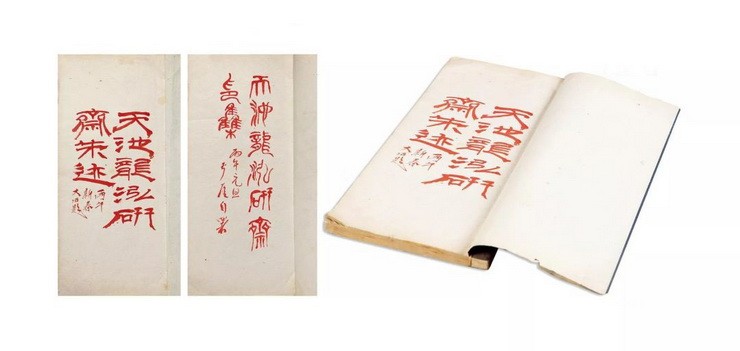 天池龍泓研
齋朱迹
丙午
新春
天池龍泓研齋
丙午元旦
天池龍泓研
齋朱迹
丙午
新春